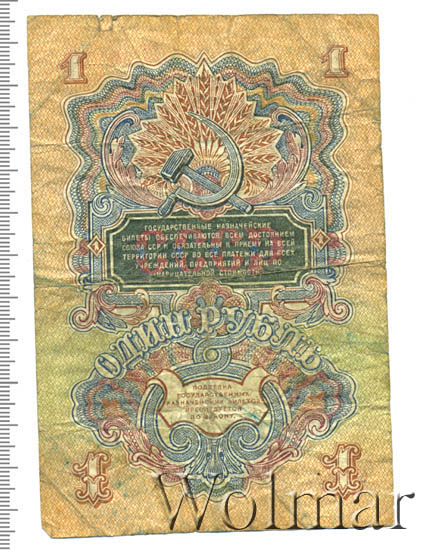 1 1
ГОСУДАРСТВЕННЫЕ КАЗНАЧЕЙСКИЕ
БИЛЕТЫ ОБЕСПЕЧИВАЮТСЯ ВСЕМ ДОСТОЯНИЕМ
СОЮЗА ССР И ОБЯЗАТЕЛЬНЫ К ПРИЕМУ НА ВСЕЙ
1 ТЕРРИТОРИИ СССР ВО ВСЕ ПЛАТЕЖИ ДЛЯ ВСЕХ 1
УЧРЕЖДЕНИЙ, ПРЕДПРИЯТИЙ И ЛИЦ ПО
НАРИЦАТЕЛЬНОЙ СТОИМОСТИ
ОДИН РУБЛЬ
ПОДДЕЛКА
ГОСУДАРСТВЕННЫХ
КАЗНАЧЕЙСКИХ БИЛЕТОВ
ПРЕСЛЕДУЕТСЯ
ПО ЗАКОНУ.
1 1
Wolmar